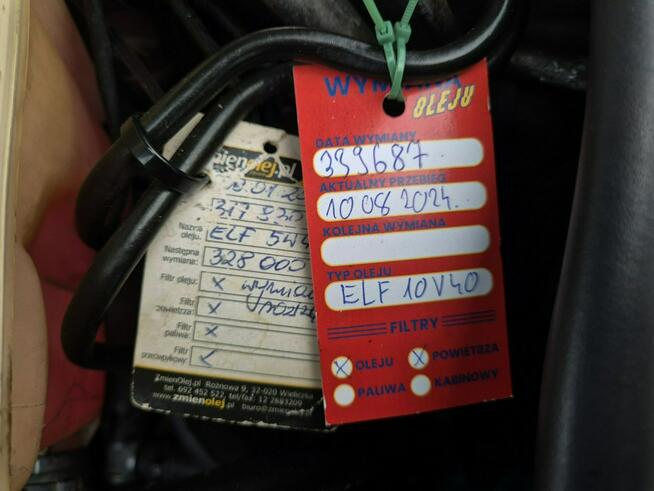 WYMIANA
OLEJU
DATA WYMIANY
339687
AKTUALNY PRZEBIEG
10 08 2024
KOLEJNA WYMIANA
TYP OLEJU
ELF 10V40
FILTRY
X OLEJU X POWIETRZA
PALIWA KABINOWY
mienolej.pl
Nazwa
oleju: ELF 5W4
Następna
wymiana: 328 000
Filtr oleju: X
Filtr
powietrza: X
Filtr
paliwa: X
Filtr
ZmienOlej.pl Rożnowa 9, 32-020 Wieliczka
tel. 692 452 522, tel/fax: 12 2883209
www.zmienolej.pl